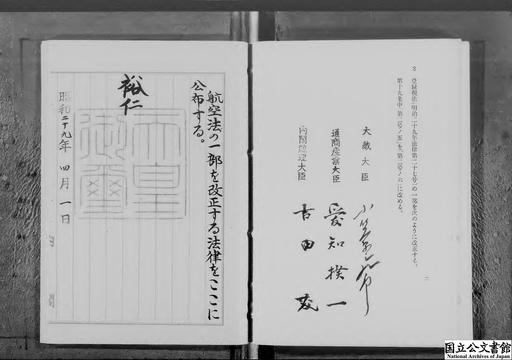 2 登録税法(明治二十九年法律第二十七号)の一部を次のように改正する。
第十九条中
に改める。
大蔵大臣 小笠原三九郎
通商産業大臣 愛知揆一
内閣総理大臣 吉田茂
航空法の一部を改正する法律をここに
公布する。
裕仁
天皇
御璽
昭和二十九年 四月 一日
国立公文書館
National Archives of Japan